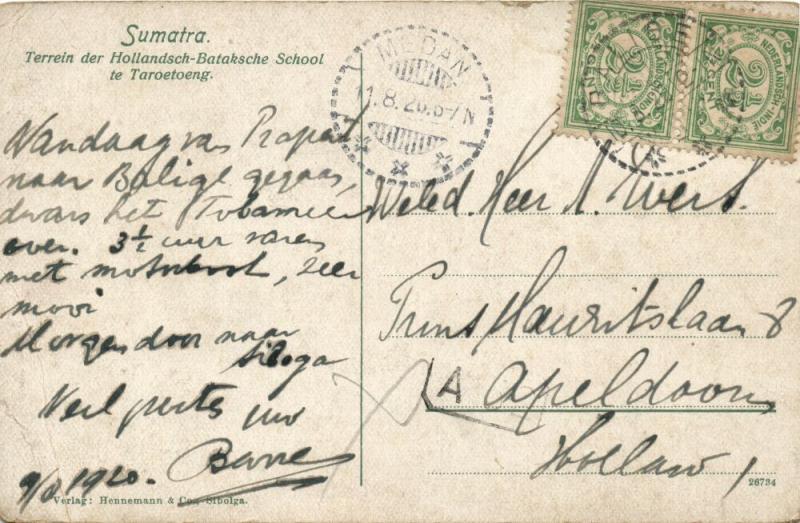 Sumatra.
Terrein der Hollandsch-Bataksche School
te Taroetoeng.
MEDAN
11.8.20.6-7N
NEDERLANDSCH-INDIE
2½
NEDERLANDSCH-INDIE
2½
Vandaag van Prapat
naar Balige gegaan,
dwars het Tobameer
over. 3½ uur varen
met motorboot, zeer
mooi
Morgen door naar
Siboga
Veel groetes
9/8 1920.
Weled. Heer A.
Prins Mauritslaan 8
A
Apeldoorn
Holland
Verlag: Hennemann & Co., Sibolga.
26734